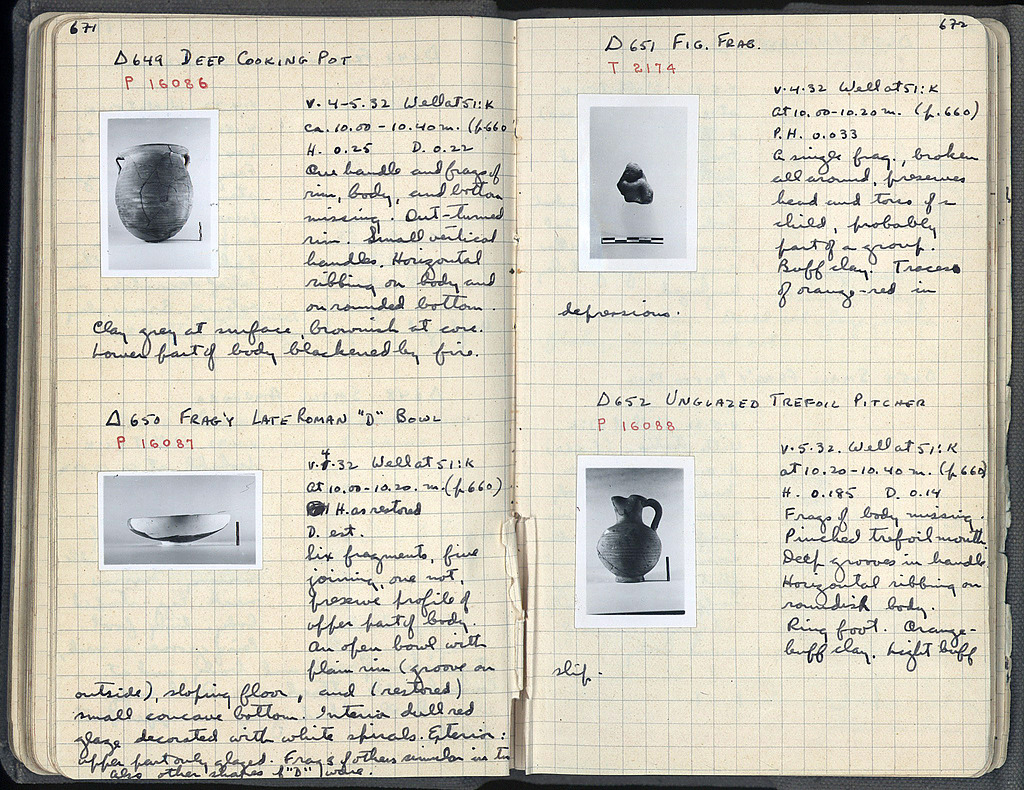 671
Δ649 DEEP COOKING POT
P 16086
V.4-5.32 Well at 51:K
ca. 10.00 - 10.40 m. (p.660
H. 0.25 D. 0.22
One handle and frags of
rim, body, and bottom
missing. Out-turned
rim. Small vertical
handles. Horizontal
ribbing on body and
on rounded bottom.
Clay grey at surface, brownish at core.
Lower part of body blackened by fire.
Δ650 FRAG'Y LATE ROMAN "D" BOWL
P 16087
V.4.32 Well at 51:K
At 10.00-10.20. m. (p.660)
H. as restored
D. est.
Six fragments, five
joining, one not,
preserve profile of
upper part of body.
An open bowl with
plain rim (groove on
outside), sloping floor, and (restored)
small concave bottom. Interior dull red
glaze decorated with white spirals. Exterior:
upper part only glazed. Frags of others similar in
also other shapes of "D" ware.
672
Δ651 FIG. FRAG.
T 2174
V.4.32 Well at 51:K
At 10.00-10.20 m. (p.660)
P.H. 0.033
A single frag., broken
all around, preserves
head and torso of a
child, probably
part of a group.
Buff clay. Traces
of orange-red in
depressions.
Δ652 UNGLAZED TREFOIL PITCHER
P 16088
V.5.32. Well at 51:K
at 10.20-10.40 m. (p.660)
H. 0.185 D. 0.14
Frags of body missing.
Pinched trefoil mouth.
Deep grooves in handle
Horizontal ribbing on
roundish body.
Ring foot. Orange-
buff clay. Light buff
slip.